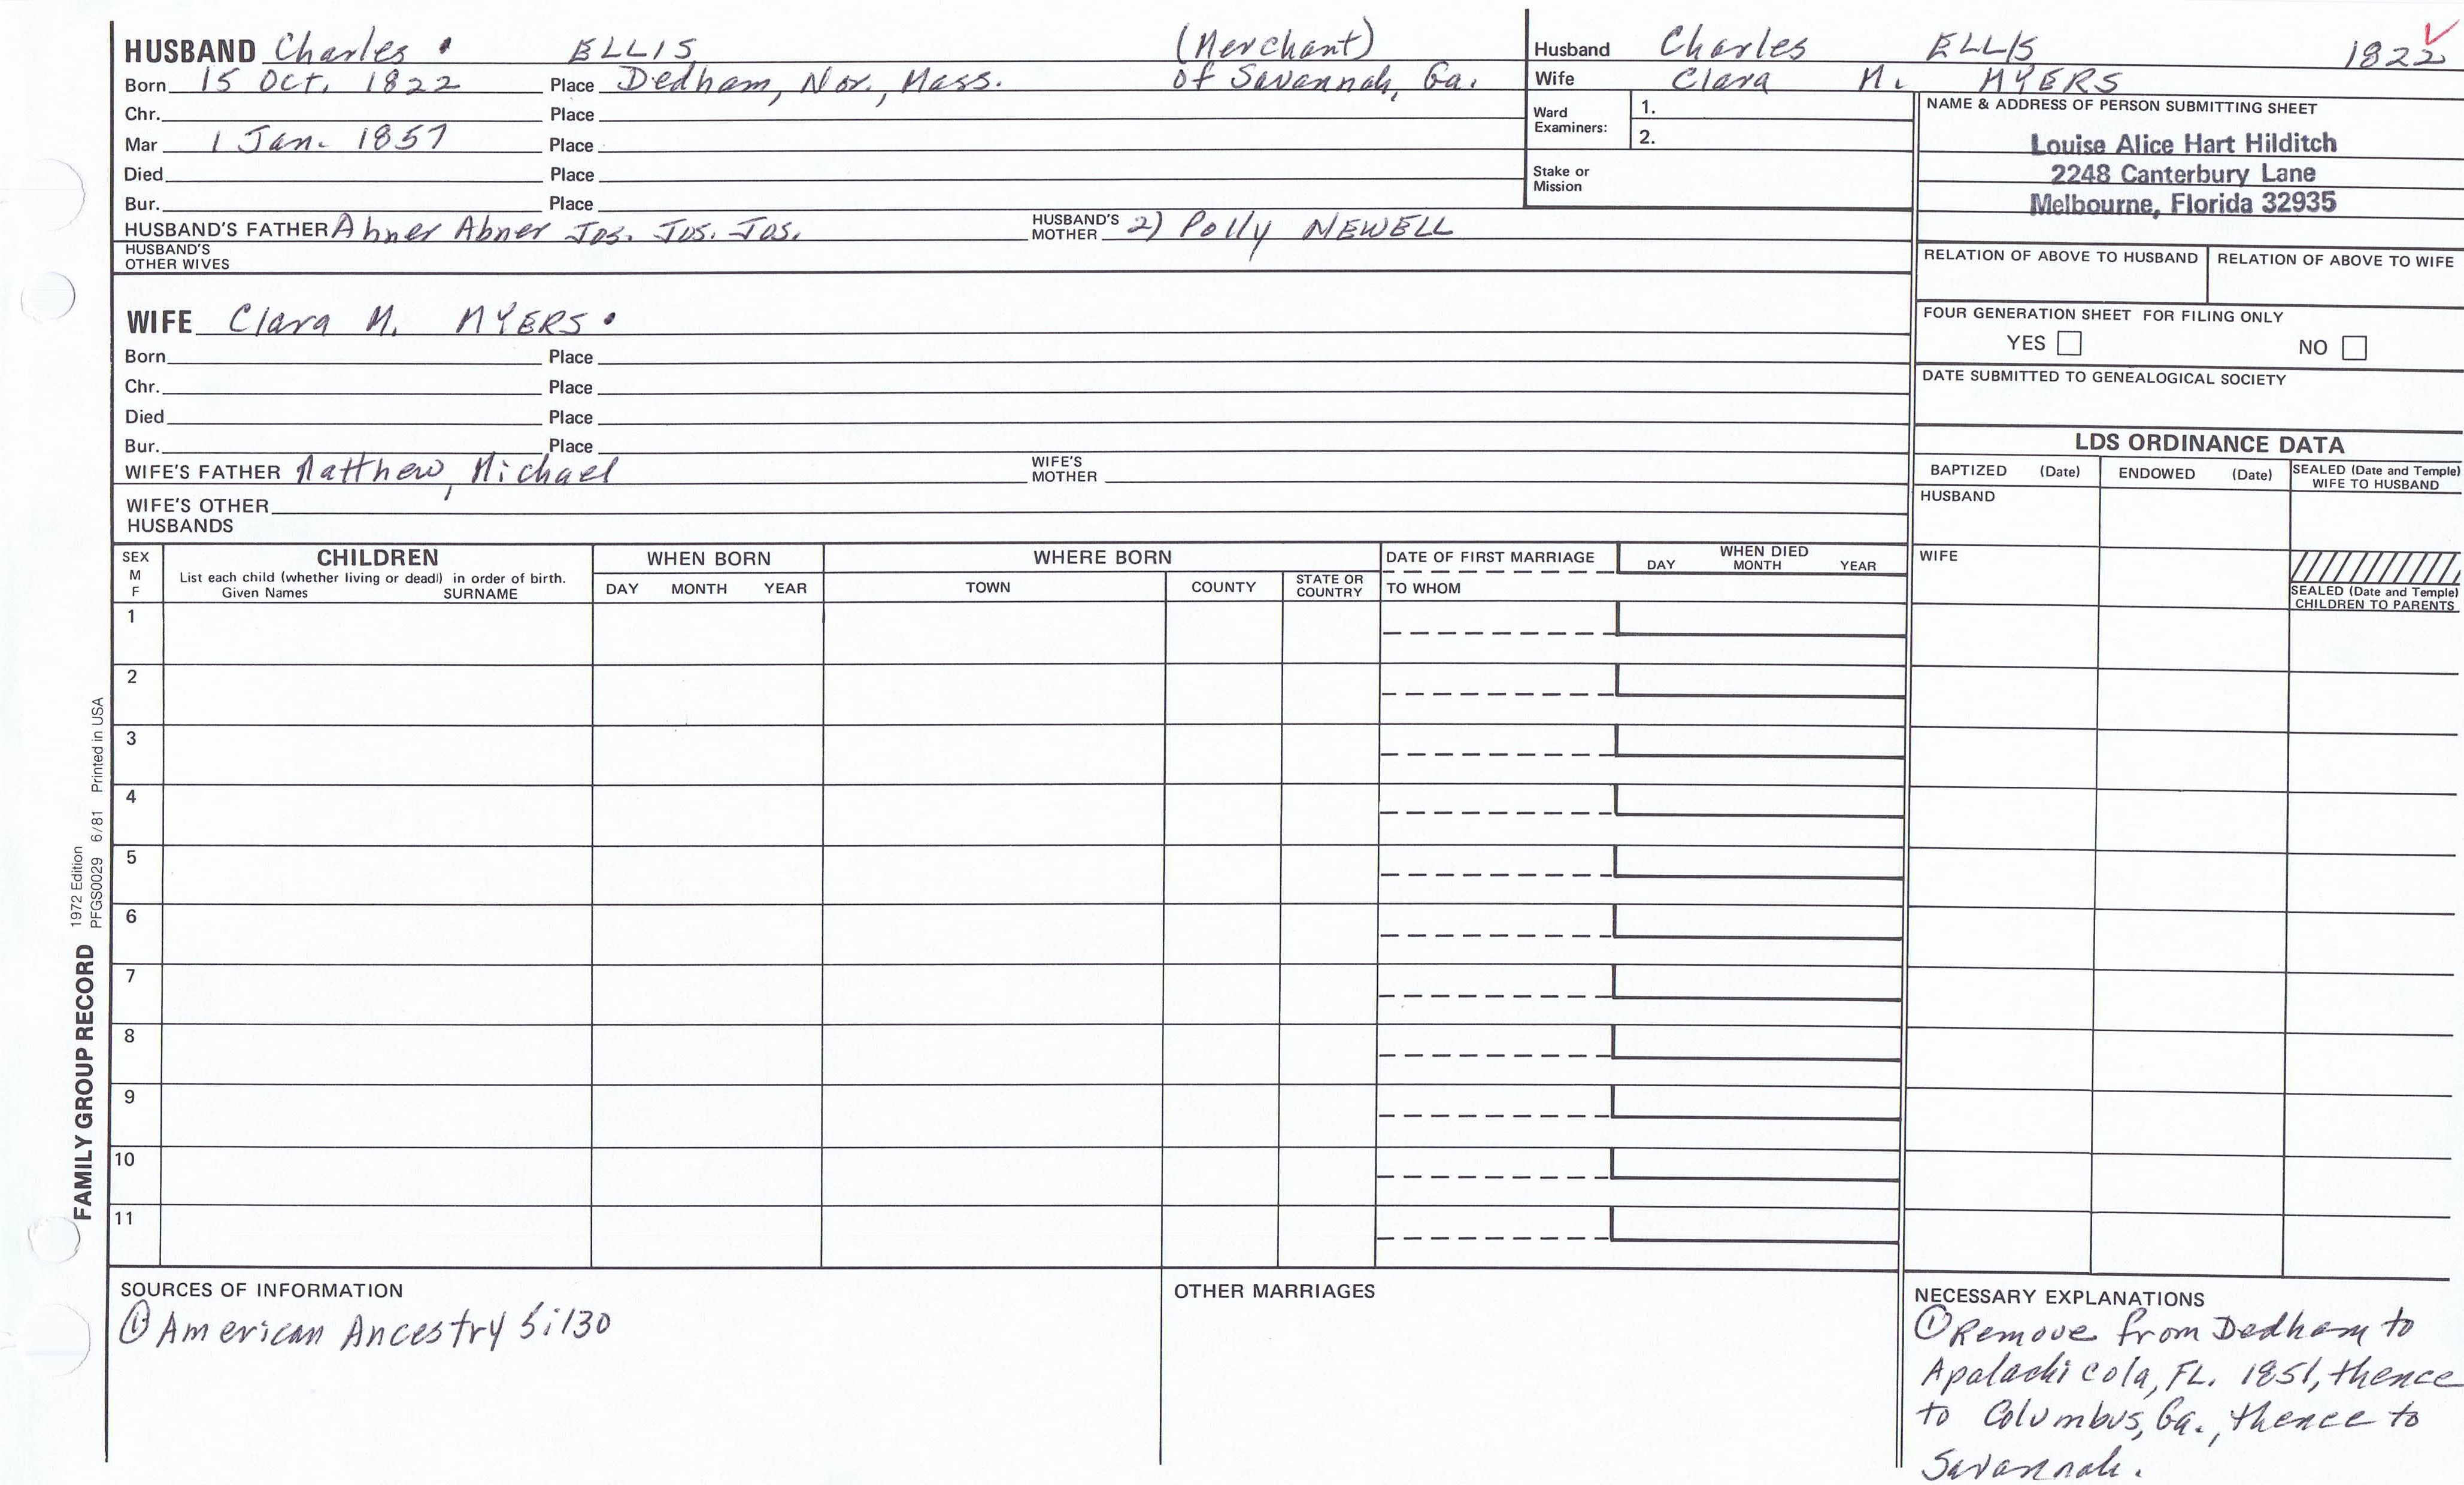 HUSBAND Charles ELLIS (Merchant)
Born 15 Oct. 1822 Place Dedham, Nor., Mass. of Savannah, Ga.
Chr. Place
Mar 1 Jan. 1857 Place
Died Place
Bur. Place
HUSBAND'S FATHER Abner Abner Jos. Jos. Jos. HUSBAND'S MOTHER 2) Polly NEWELL
HUSBAND'S
OTHER WIVES
Husband Charles ELLIS 1822
Wife Clara M. MYERS
Ward
Examiners: 1.
2.
Stake or
Mission
NAME & ADDRESS OF PERSON SUBMITTING SHEET
Louise Alice Hart Hilditch
2248 Canterbury Lane
Melbourne, Florida 32935
RELATION OF ABOVE TO HUSBAND RELATION OF ABOVE TO WIFE
FOUR GENERATION SHEET FOR FILING ONLY
YES NO
DATE SUBMITTED TO GENEALOGICAL SOCIETY
WIFE Clara M. MYERS
Born Place
Chr. Place
Died Place
Bur. Place
WIFE'S FATHER Matthew, Michael WIFE'S MOTHER
WIFE'S OTHER
HUSBANDS
LDS ORDINANCE DATA
BAPTIZED (Date) ENDOWED (Date) SEALED (Date and Temple)
WIFE TO HUSBAND
HUSBAND
WIFE
SEALED (Date and Temple)
CHILDREN TO PARENTS
SEX
M
F
CHILDREN
List each child (whether living or dead) in order of birth.
Given Names SURNAME
WHEN BORN
DAY MONTH YEAR
WHERE BORN
TOWN COUNTY STATE OR
COUNTRY
DATE OF FIRST MARRIAGE
TO WHOM
WHEN DIED
DAY MONTH YEAR
1
2
3
4
5
6
7
8
9
10
11
FAMILY GROUP RECORD
1972 Edition
PFGS0029 6/81 Printed in USA
SOURCES OF INFORMATION
① American Ancestry 5:130
OTHER MARRIAGES
NECESSARY EXPLANATIONS
① Remove from Dedham to
Apalachicola, FL. 1851, thence
to Columbus, Ga., thence to
Savannah.